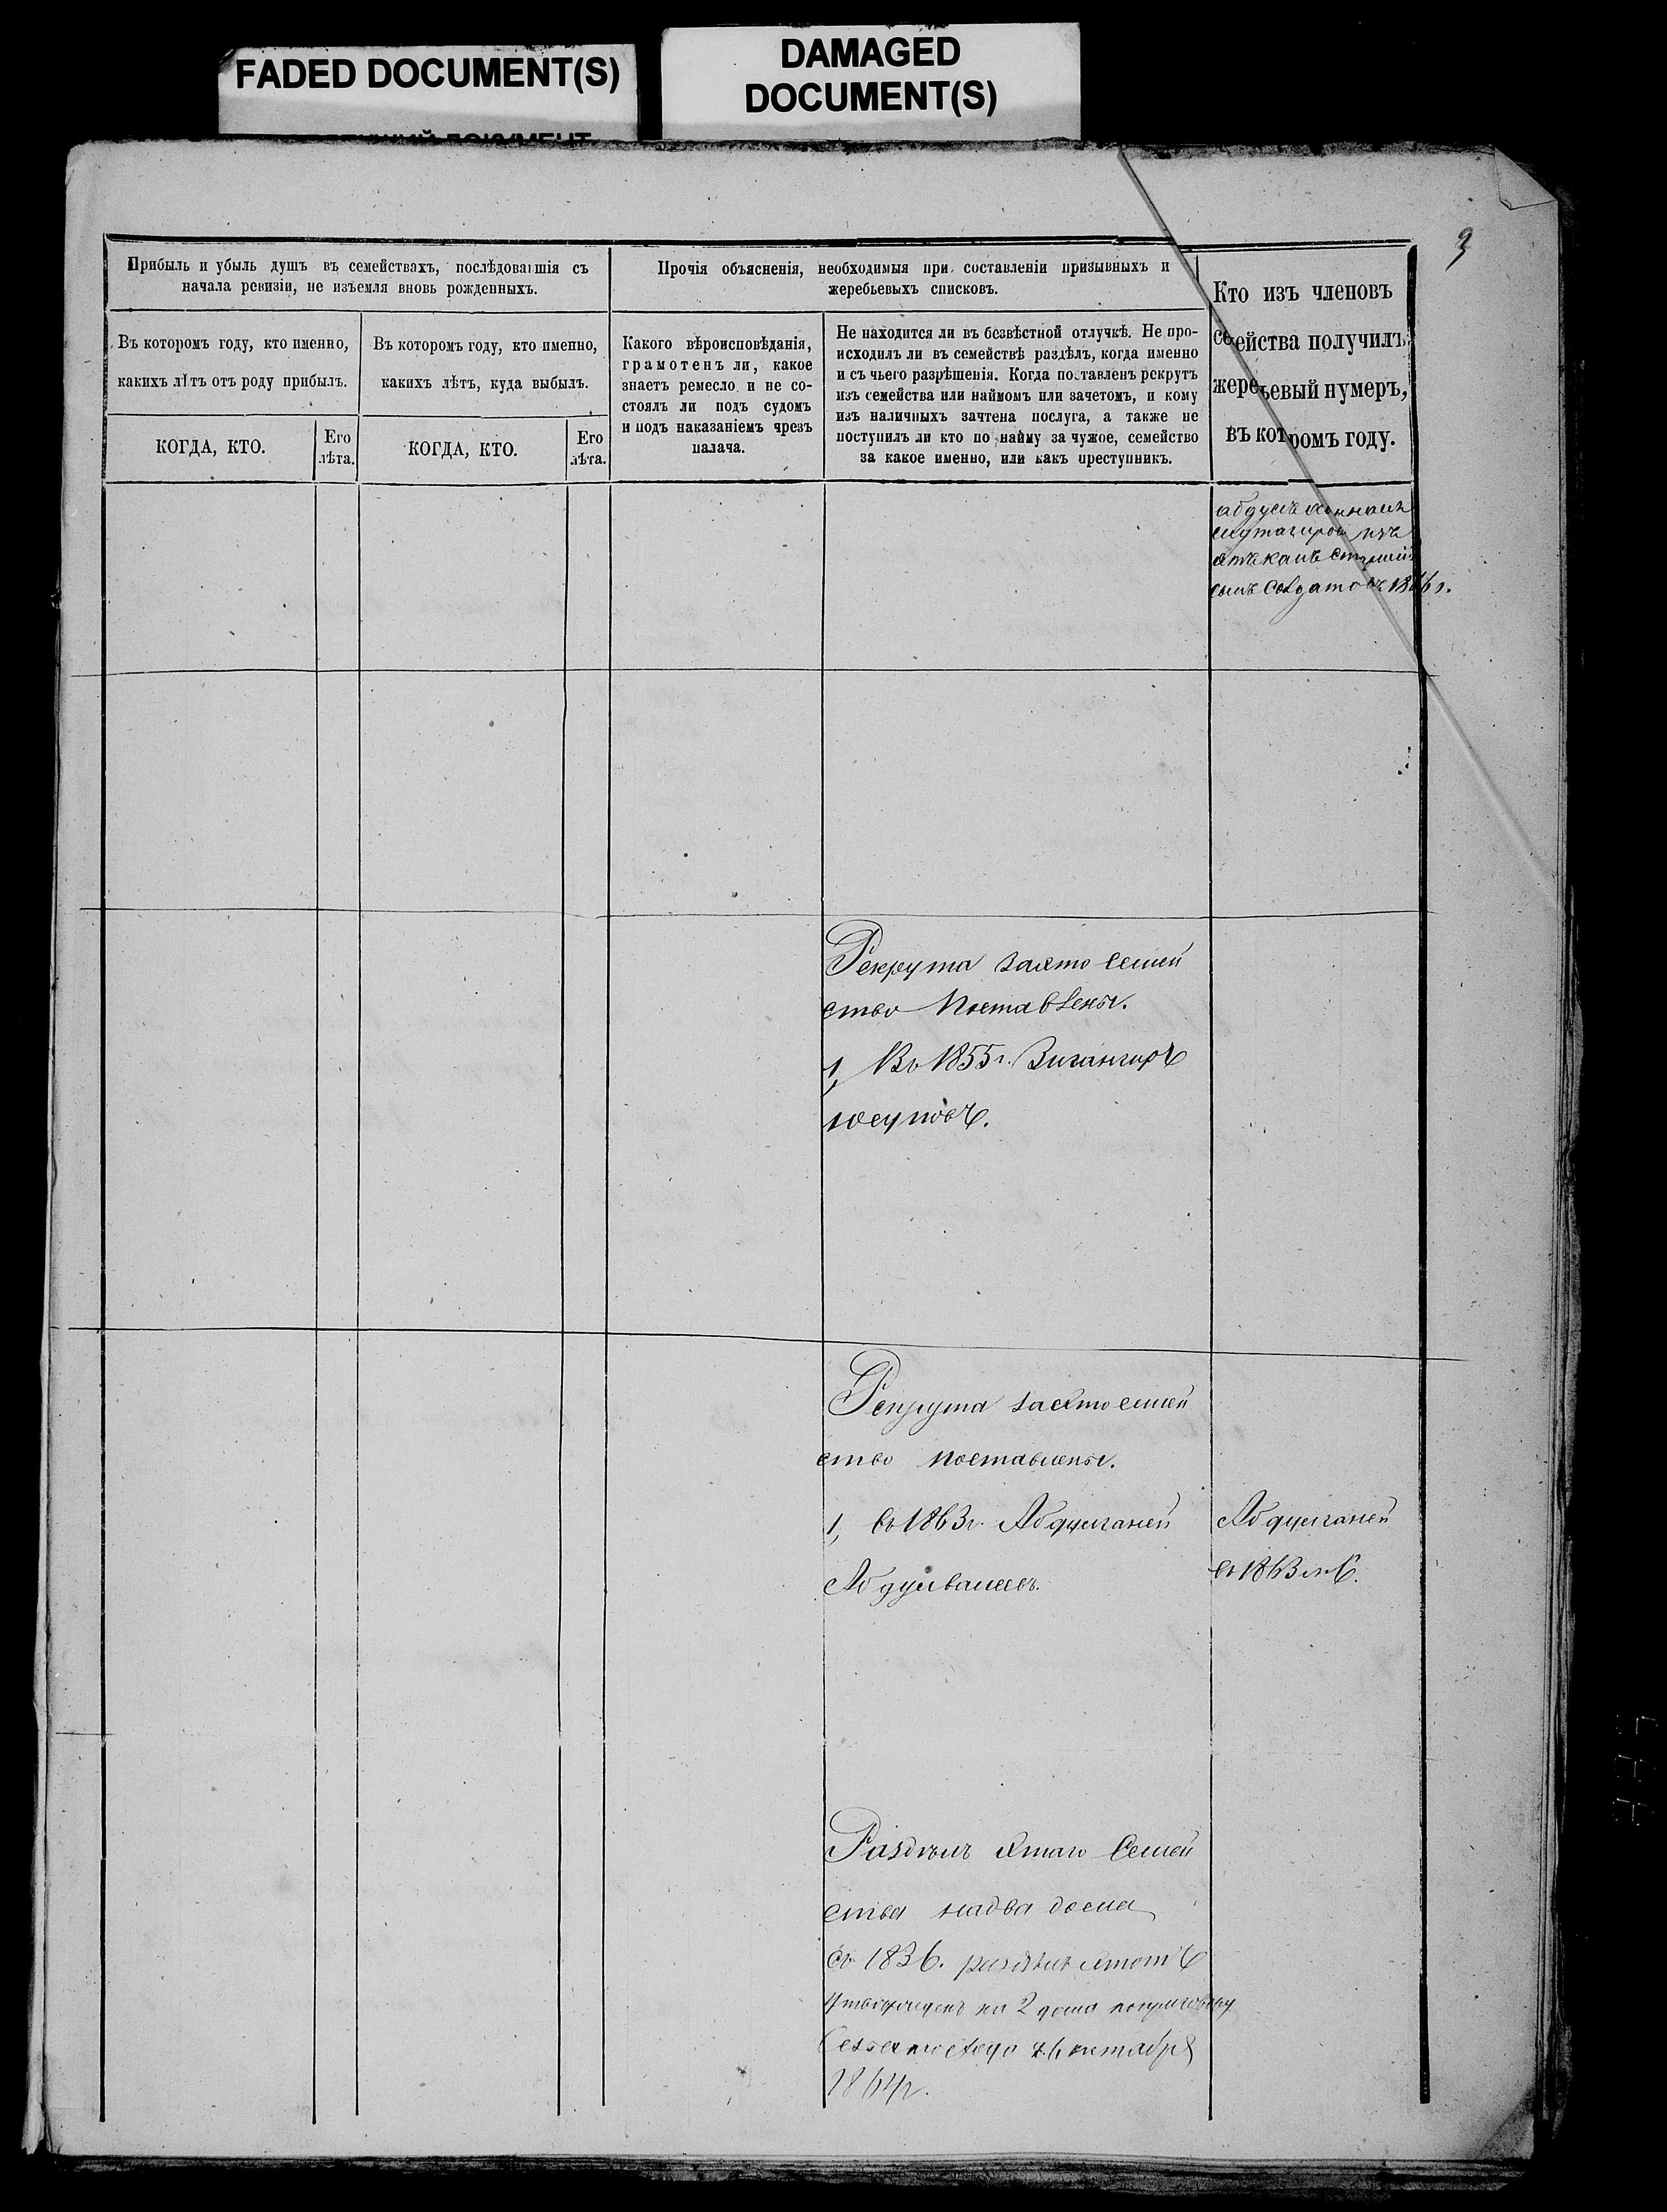 FADED DOCUMENT(S)
DAMAGED
DOCUMENT(S)
3
Прибыль и убыль душъ въ семействахъ, послѣдовавшія съ
начала ревизіи, не изъемля вновь рожденныхъ.
Прочія объясненія, необходимыя при составленіи призывныхъ и
жеребьевыхъ списковъ.
Кто изъ членовъ
семейства получилъ
жеребьевый нумеръ,
въ которомъ году.
Въ которомъ году, кто именно,
какихъ лѣтъ отъ роду прибылъ.
Въ которомъ году, кто именно,
какихъ лѣтъ, куда выбылъ.
Какого вѣроисповѣданія,
грамотенъ ли, какое
знаетъ ремесло и не со-
стоялъ ли подъ судомъ
и подъ наказаніемъ чрезъ
палача.
Не находится ли въ безвѣстной отлучкѣ. Не про-
исходилъ ли въ семействѣ раздѣлъ, когда именно
и съ чьего разрѣшенія. Когда поставленъ рекрутъ
изъ семейства или наймомъ или зачетомъ, и кому
изъ наличныхъ зачтена послуга, а также не
поступилъ ли кто по найму за чужое, семейство
за какое именно, или какъ преступникъ.
КОГДА, КТО.
Его
лѣта.
КОГДА, КТО.
Его
лѣта.
сынъ 1866 г.
Рекрута заято семей
ство поставлены.
1, Въ 1855 г. Зигангиръ
юсуповъ.
Рекрута заято семей
ство поставлены.
1, въ 1863 г. Абдулганей
Абдулвалеевъ.
Абдулганей
въ 1863
Раздѣлъ ятаго семей
ства надва дома
въ 1836. раздѣлъ ятотъ
на 2 дома
октября
1864 г.